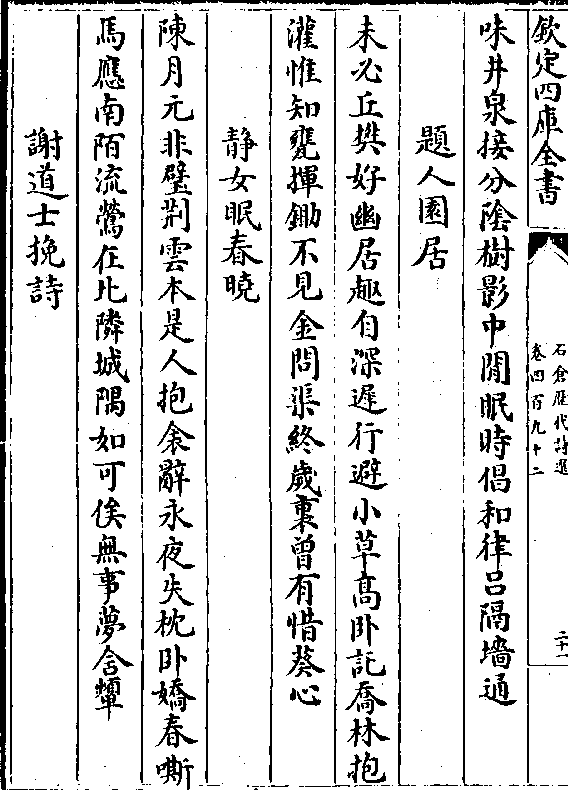 欽定四庫全書
石倉歷代詩選
卷四百九十二
二十一
味井泉接分陰樹影中閒眠時倡和律呂隔墻通
題人園居
未必丘樊好幽居趣自深遲行避小草高卧託喬林抱
灌惟知甕揮鋤不見金問渠終歲裏曾有惜葵心
静女眠春曉
陳月元非璧荆雲本是人抱衾辭永夜失枕卧嬌春嘶
馬應南陌流鶯在比隣城隅如可俟無事夢含顰
謝道士挽詩